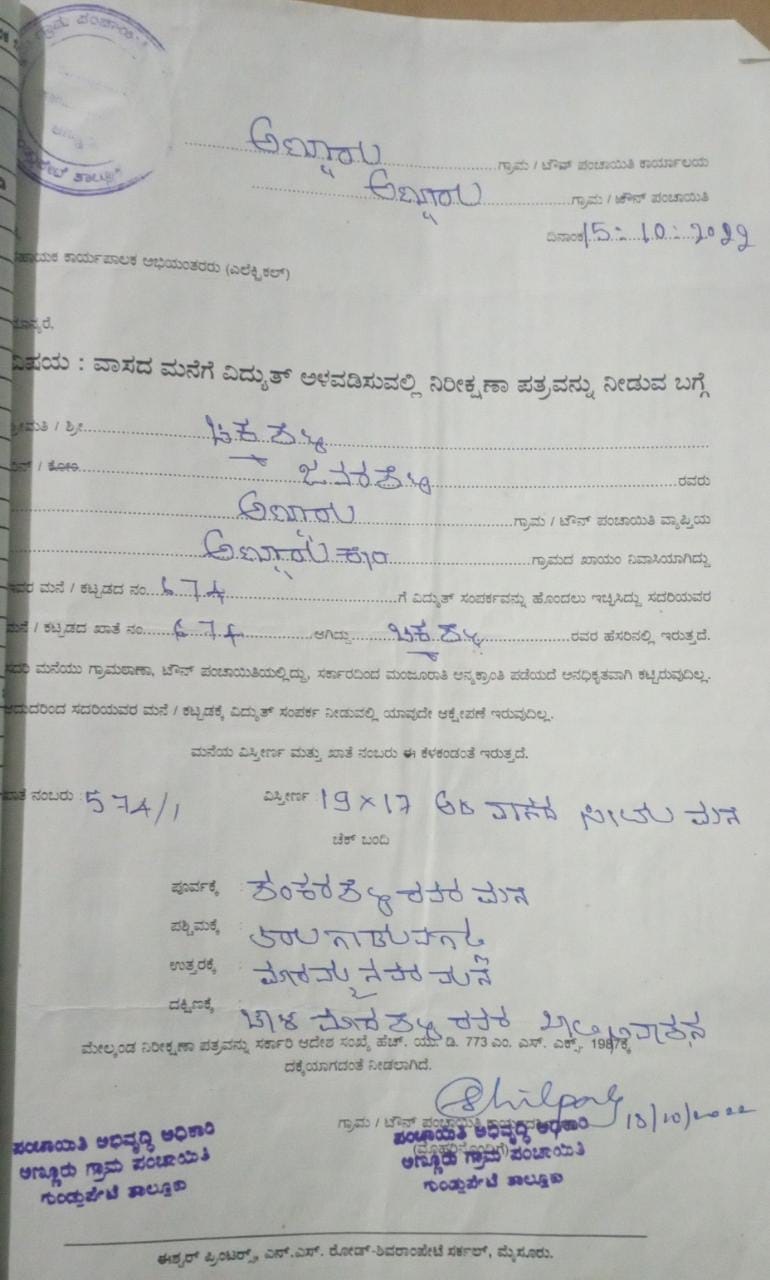 ಗ್ರಾಮ ಪಂಚಾಯಿತಿ
ತಾಲ್ಲೂಕು
ಅಣ್ಣೂರು ಗ್ರಾಮ / ಟೌನ್ ಪಂಚಾಯಿತಿ ಕಾರ್ಯಾಲಯ
ಅಣ್ಣೂರು ಗ್ರಾಮ / ಟೌನ್ ಪಂಚಾಯಿತಿ
ದಿನಾಂಕ 15-10-2022
ಸಹಾಯಕ ಕಾರ್ಯಪಾಲಕ ಅಭಿಯಂತರರು (ಎಲೆಕ್ಟ್ರಿಕಲ್)
ಮಾನ್ಯರೆ,
ವಿಷಯ : ವಾಸದ ಮನೆಗೆ ವಿದ್ಯುತ್ ಅಳವಡಿಸುವಲ್ಲಿ ನಿರೀಕ್ಷಣಾ ಪತ್ರವನ್ನು ನೀಡುವ ಬಗ್ಗೆ
ಶ್ರೀಮತಿ / ಶ್ರೀ ಚಿಕ್ಕಶೆಟ್ಟಿ
ಬಿನ್ / ಕೋಂ ಜವರಶೆಟ್ಟಿ ರವರು
ಅಣ್ಣೂರು ಗ್ರಾಮ / ಟೌನ್ ಪಂಚಾಯಿತಿ ವ್ಯಾಪ್ತಿಯ
ಅಣ್ಣೂರು ಗ್ರಾಮದ ಖಾಯಂ ನಿವಾಸಿಯಾಗಿದ್ದು
ಇವರ ಮನೆ / ಕಟ್ಟಡದ ನಂ. 674 ಗೆ ವಿದ್ಯುತ್ ಸಂಪರ್ಕವನ್ನು ಹೊಂದಲು ಇಚ್ಛಿಸಿದ್ದು ಸದರಿಯವರ
ಮನೆ / ಕಟ್ಟಡದ ಖಾತೆ ನಂ. 674 ಆಗಿದ್ದು ಚಿಕ್ಕಶೆಟ್ಟಿ ರವರ ಹೆಸರಿನಲ್ಲಿ ಇರುತ್ತದೆ.
ಸದರಿ ಮನೆಯು ಗ್ರಾಮಠಾಣಾ, ಟೌನ್ ಪಂಚಾಯಿತಿಯಲ್ಲಿದ್ದು, ಸರ್ಕಾರದಿಂದ ಮಂಜೂರಾತಿ ಅನ್ಯಕ್ರಾಂತಿ ಪಡೆಯದೆ ಅನಧಿಕೃತವಾಗಿ ಕಟ್ಟಿರುವುದಿಲ್ಲ.
ಆದುದರಿಂದ ಸದರಿಯವರ ಮನೆ / ಕಟ್ಟಡಕ್ಕೆ ವಿದ್ಯುತ್ ಸಂಪರ್ಕ ನೀಡುವಲ್ಲಿ ಯಾವುದೇ ಆಕ್ಷೇಪಣೆ ಇರುವುದಿಲ್ಲ.
ಮನೆಯ ವಿಸ್ತೀರ್ಣ ಮತ್ತು ಖಾತೆ ನಂಬರು ಈ ಕೆಳಕಂಡಂತೆ ಇರುತ್ತದೆ.
ಖಾತೆ ನಂಬರು : 574/1 ವಿಸ್ತೀರ್ಣ : 19×17 ಅಡಿ ವಾಸದ ಸೀಟು ಮನೆ
ಚೆಕ್ ಬಂದಿ
ಪೂರ್ವಕ್ಕೆ : ಶಂಕರಶೆಟ್ಟಿ ರವರ ಮನೆ
ಪಶ್ಚಿಮಕ್ಕೆ :
ಉತ್ತರಕ್ಕೆ : ಮಾರಮ್ಮನವರ ಮನೆ
ದಕ್ಷಿಣಕ್ಕೆ : ರವರ
ಮೇಲ್ಕಂಡ ನಿರೀಕ್ಷಣಾ ಪತ್ರವನ್ನು ಸರ್ಕಾರಿ ಆದೇಶ ಸಂಖ್ಯೆ ಹೆಚ್. ಯು. ಡಿ. 773 ಎಂ. ಎಸ್. ಎಕ್ಸ್. 1987ಕ್ಕೆ
ದಕ್ಕೆಯಾಗದಂತೆ ನೀಡಲಾಗಿದೆ.
18/10/2022
ಗ್ರಾಮ / ಟೌನ್ ಪಂಚಾಯಿತಿ
(ಮೊಹರಿನೊಂದಿಗೆ)
ಪಂಚಾಯಿತಿ ಅಭಿವೃದ್ಧಿ ಅಧಿಕಾರಿ
ಅಣ್ಣೂರು ಗ್ರಾಮ ಪಂಚಾಯಿತಿ
ಗುಂಡ್ಲುಪೇಟೆ ತಾಲ್ಲೂಕು
ಪಂಚಾಯಿತಿ ಅಭಿವೃದ್ಧಿ ಅಧಿಕಾರಿ
ಅಣ್ಣೂರು ಗ್ರಾಮ ಪಂಚಾಯಿತಿ
ಗುಂಡ್ಲುಪೇಟೆ ತಾಲ್ಲೂಕು
ಈಶ್ವರ್ ಪ್ರಿಂಟರ್ಸ್, ಎನ್.ಎಸ್. ರೋಡ್-ಶಿವರಾಂಪೇಟೆ ಸರ್ಕಲ್, ಮೈಸೂರು.